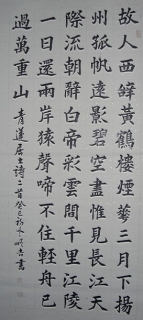 故人西辭黃鶴樓煙華三月下揚
州孤帆遠影碧空盡惟見長江天
際流朝辭白帝彩雲間千里江陵
一日還兩岸猿聲啼不住輕舟已
過萬重山 青蓮居士詩二首癸巳書